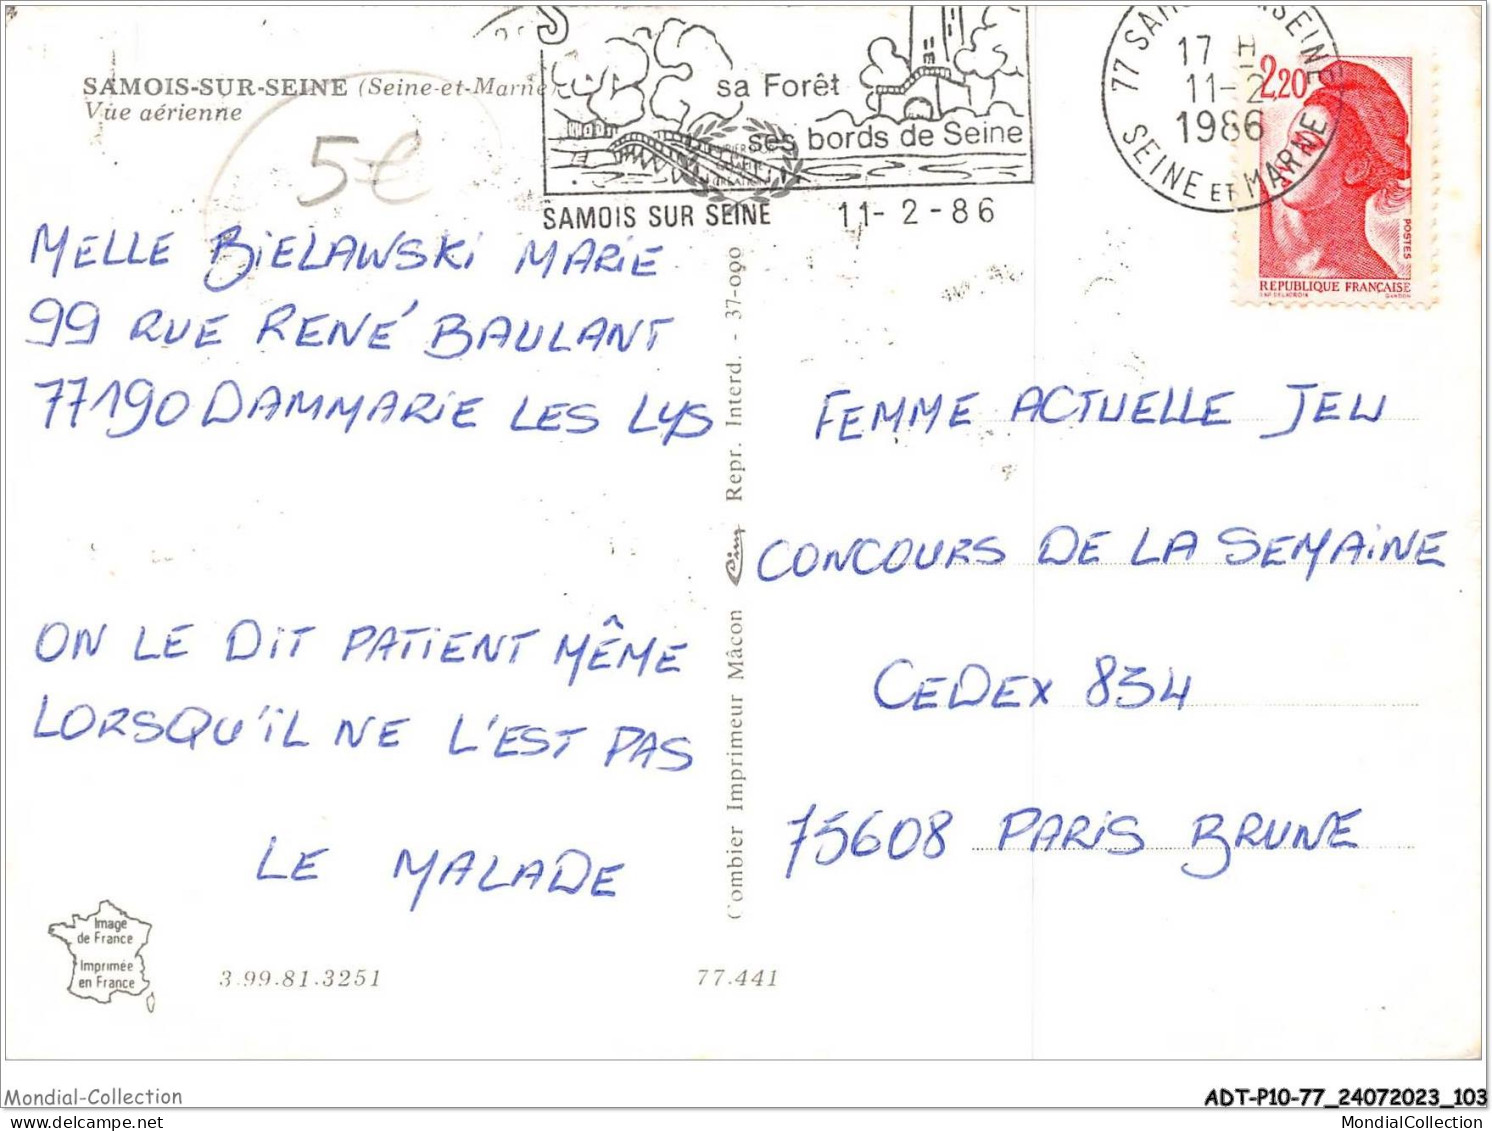 SAMOIS-SUR-SEINE (Seine-et-Marne)
Vue aérienne
5€
sa Forêt
ses bords de Seine
SAMOIS SUR SEINE 11-2-86
17 H
11-2
1986
SEINE ET MARNE
2,20
POSTES
REPUBLIQUE FRANÇAISE
MELLE BIELAWSKI MARIE
99 RUE RENÉ BAULANT
77190 DAMMARIE LES LYS
ON LE DIT PATIENT MÊME
LORSQU'IL NE L'EST PAS
LE MALADE
Combier Imprimeur Mâcon Cim Repr. Interd. - 37-090
FEMME ACTUELLE JEU
CONCOURS DE LA SEMAINE
CEDEX 834
75608 PARIS BRUNE
Image
de France
Imprimée
en France
3.99.81.3251
77.441
Mondial-Collection
ADT-P10-77_24072023_103
www.delcampe.net
MondialCollection